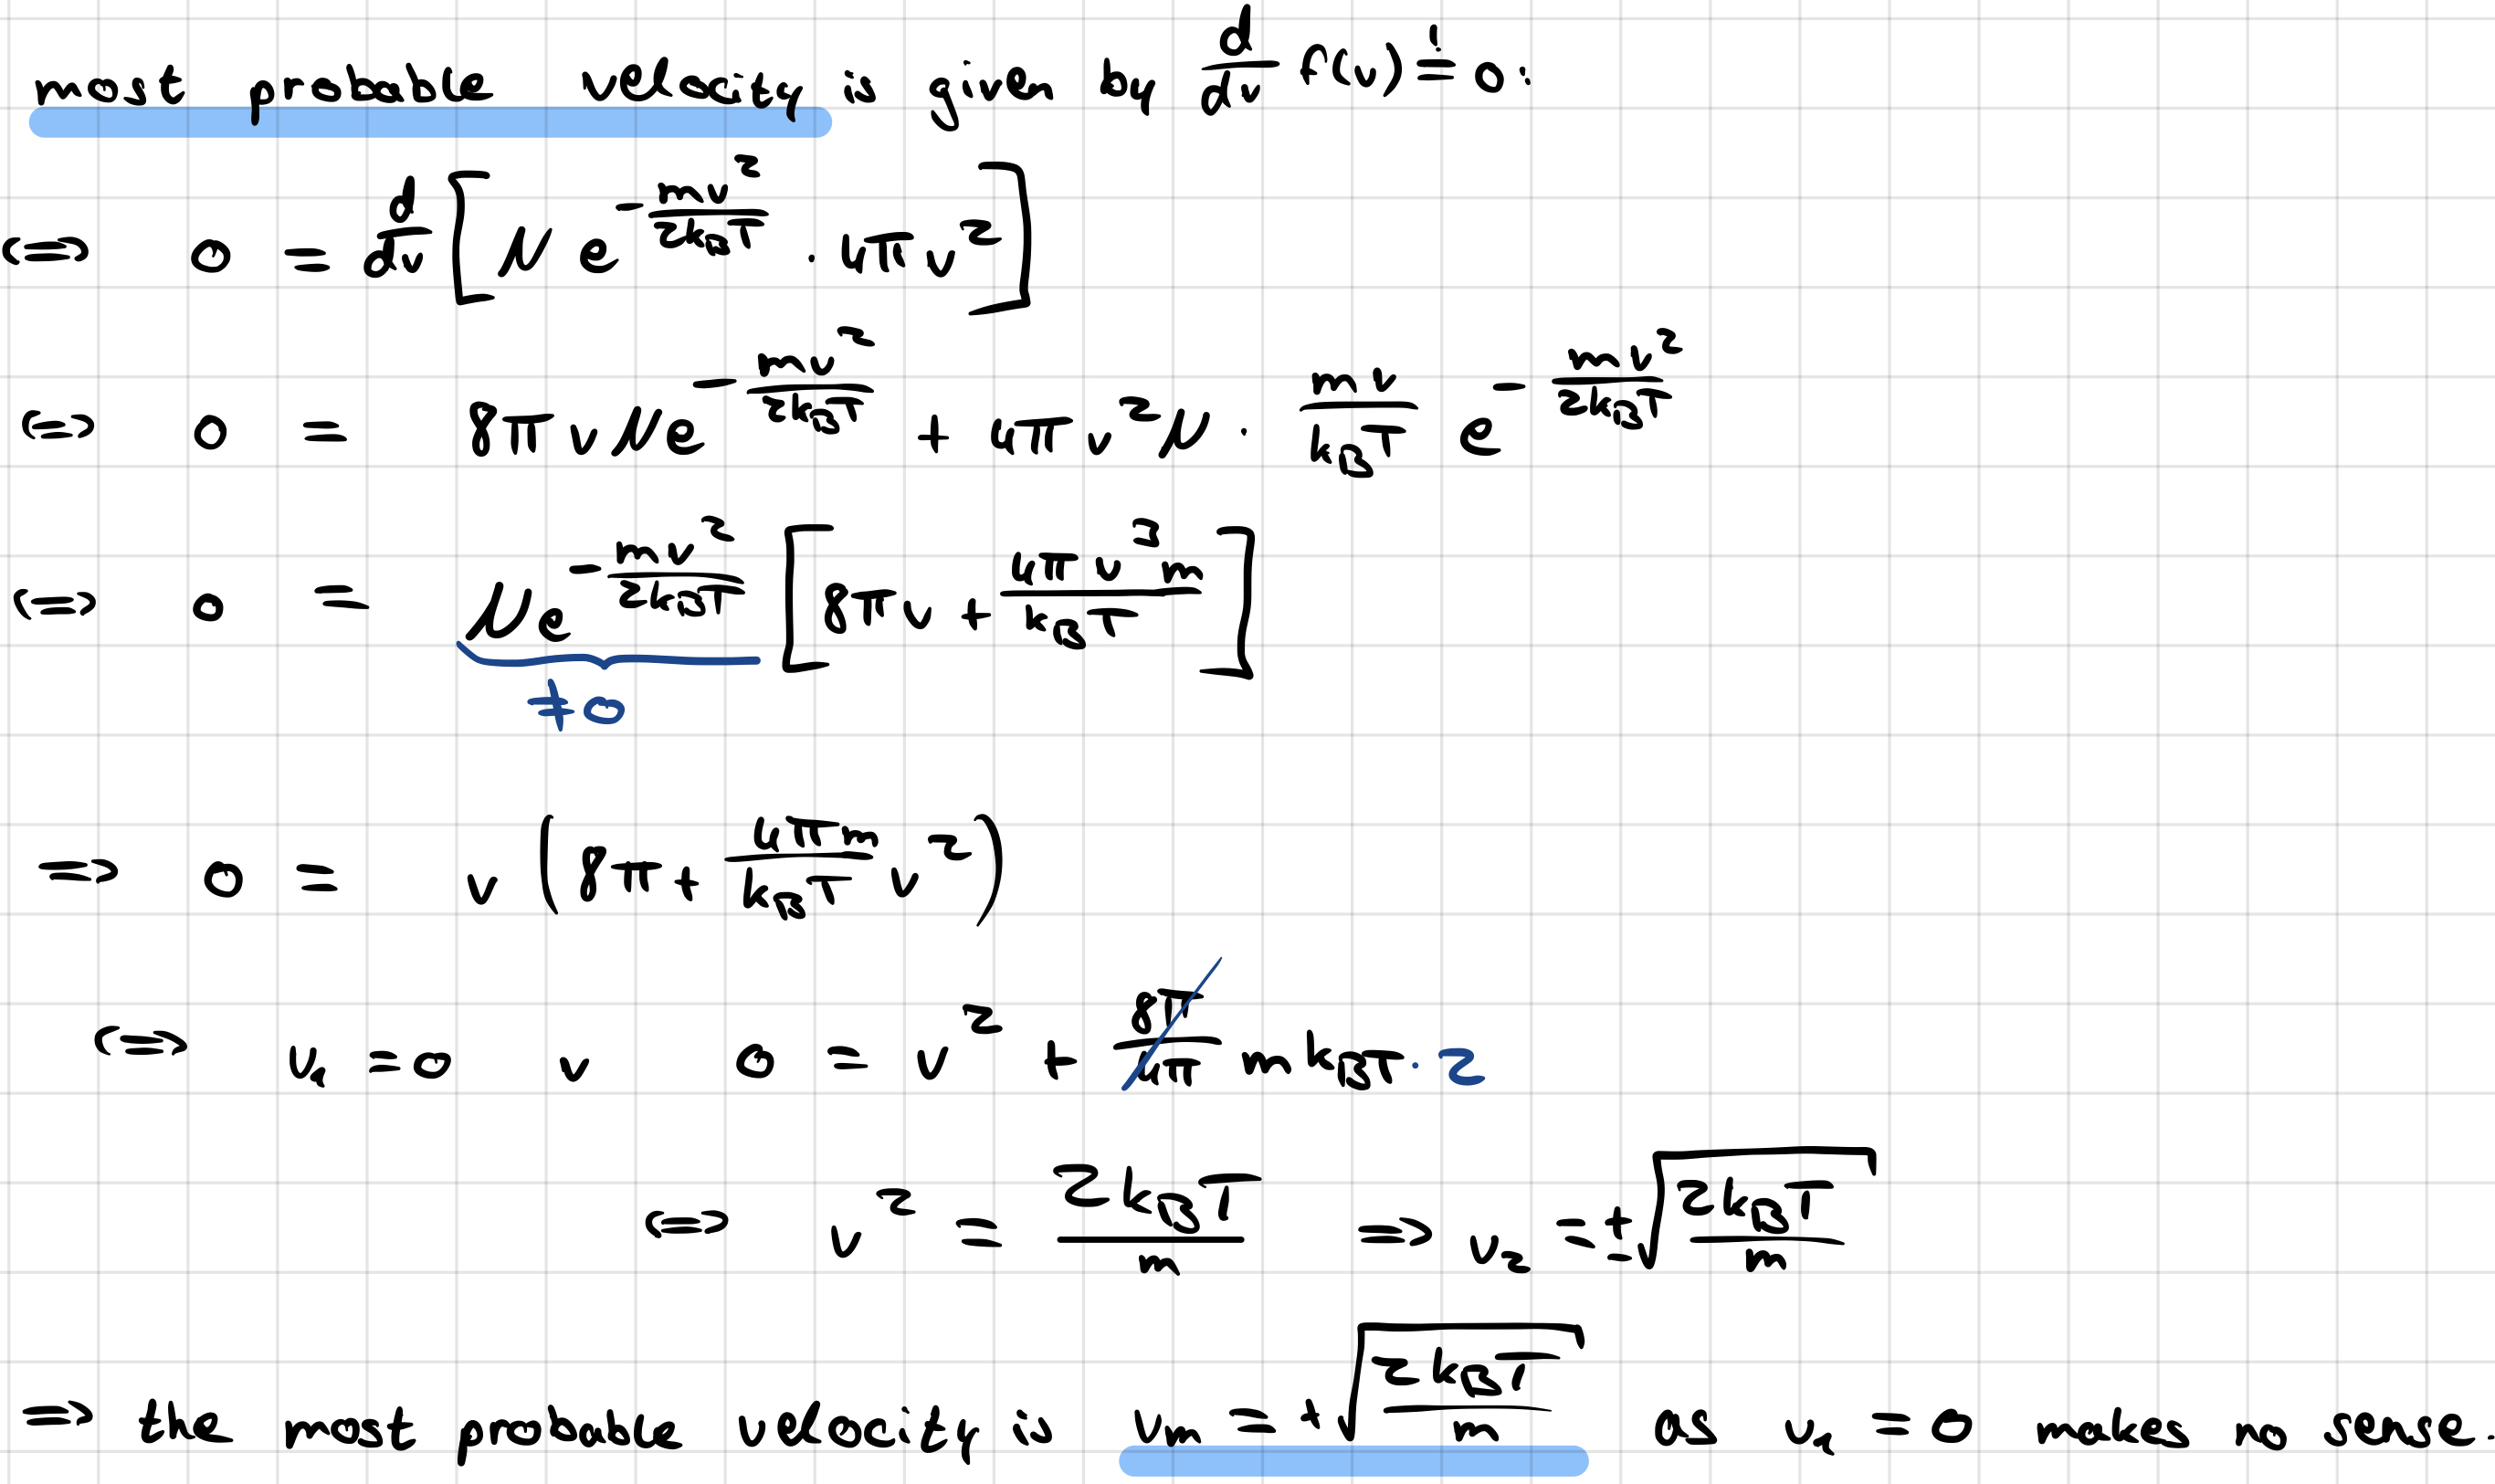 most probable velocity is given by d/dv f(v) =! 0:
<=> 0 = d/dv [N e^(-mv²/(2k_BT)) · 4πv²]
<=> 0 = 8πvNe^(-mv²/(2k_BT)) + 4πv²N · mv/(k_BT) e^(-mv²/(2k_BT))
<=> 0 = Ne^(-mv²/(2k_BT)) [8πv + 4πv³m/(k_BT)]
≠0
=> 0 = v(8π + 4πm/(k_BT) v²)
<=> v₁ = 0 ∨ 0 = v² + 8π/4π mk_BT · 2
<=> v² = 2k_BT/m => v₂ = ±√(2k_BT/m)
=> the most probable velocity is vₘ = +√(2k_BT/m) as v₁ = 0 makes no sense.